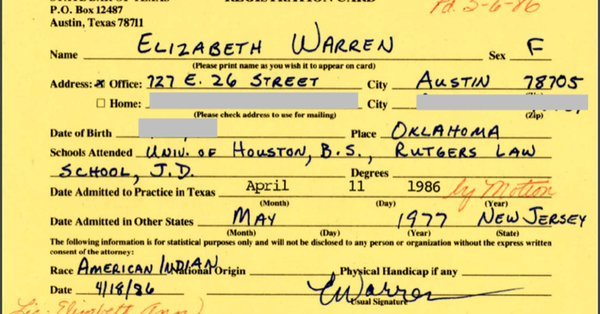 P.O. Box 12487
Austin, Texas 78711
Pd. 5-6-86
Name ELIZABETH WARREN Sex F
(Please print name as you wish it to appear on card)
Address: x Office: 727 E. 26 STREET City AUSTIN 78705
Home: City
(Please check address to use for mailing) (Zip)
Date of Birth Place OKLAHOMA
Schools Attended UNIV. OF HOUSTON, B.S., RUTGERS LAW
SCHOOL, J.D. Degrees
Date Admitted to Practice in Texas April 11 1986 by Motion
(Month) (Day) (Year)
Date Admitted in Other States MAY 1977 NEW JERSEY
(Month) (Day) (Year) (State)
The following information is for statistical purposes only and will not be disclosed to any person or organization without the express written
consent of the attorney:
Race AMERICAN INDIAN National Origin Physical Handicap if any
Date 4/18/86 EWarren
Usual Signature
Lic. Elizabeth Ann